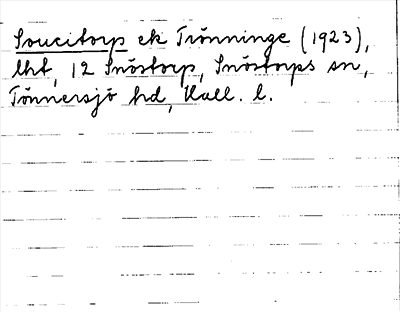 Soucitorp ek Trönninge (1923),
lht, 12 Snöstorp, Snöstorps sn,
Tönnersjö hd, Hall. l.